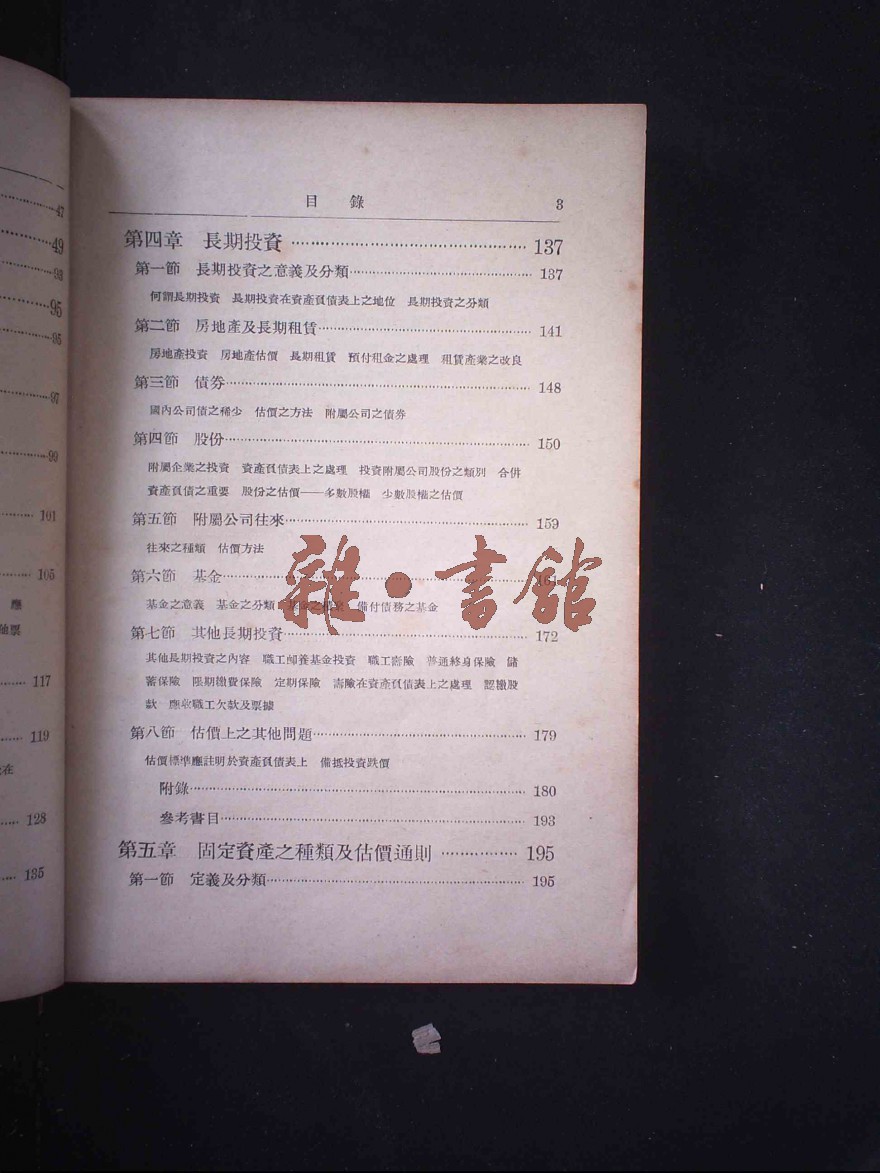 47
49
93
95
95
97
99
101
105
應
117
119
在
128
135
目 錄 3
第四章 長期投資 137
第一節 長期投資之意義及分類 137
何謂長期投資 長期投資在資產負債表上之地位 長期投資之分類
第二節 房地產及長期租賃 141
房地產投資 房地產估價 長期租賃 預付租金之處理 租賃產業之改良
第三節 債券 148
國內公司債之稀少 估價之方法 附屬公司之債券
第四節 股份 150
附屬企業之投資 資產負債表上之處理 投資附屬公司股份之類別 合併
資產負債之重要 股份之估價——多數股權 少數股權之估價
第五節 附屬公司往來 159
往來之種類 估價方法
第六節 基金 161
基金之意義 基金之分類 基金之 備付債務之基金
第七節 其他長期投資 172
其他長期投資之內容 職工卹養基金投資 職工壽險 普通終身保險 儲
蓄保險 限期繳費保險 定期保險 壽險在資產負債表上之處理 認繳股
款 應收職工欠款及票據
第八節 估價上之其他問題 179
估價標準應註明於資產負債表上 備抵投資跌價
附錄 180
參考書目 193
第五章 固定資產之種類及估價通則 195
第一節 定義及分類 195
雜·書館